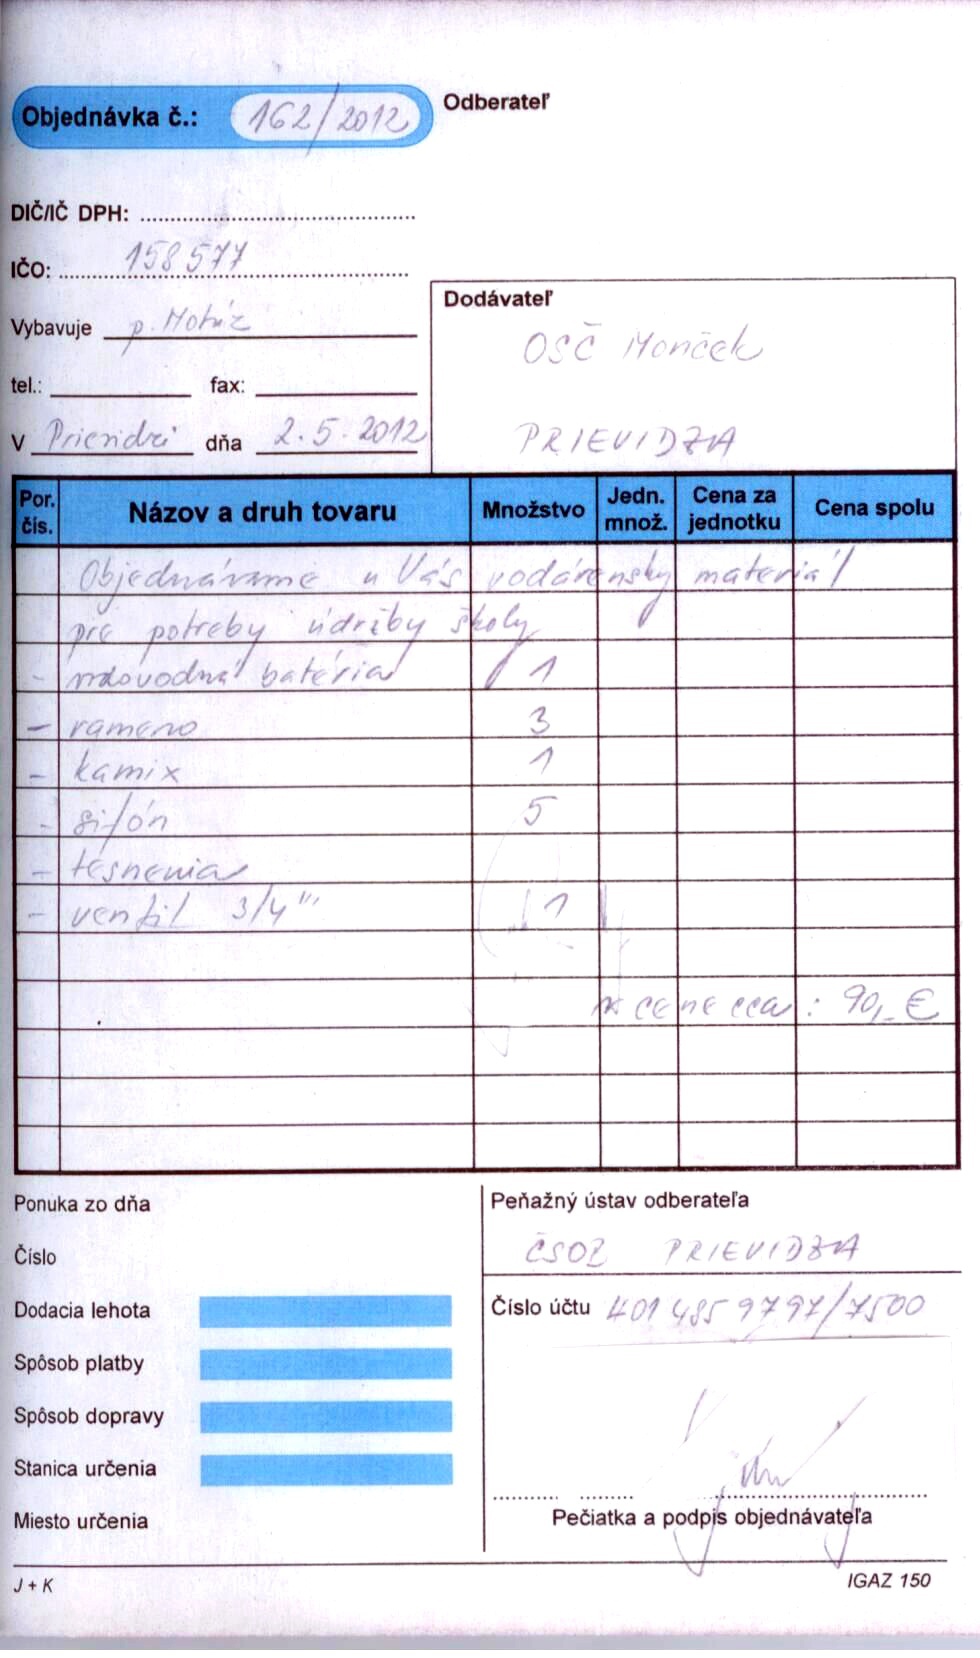 Objednávka č.: 162/2012
Odberateľ
DIČ/IČ DPH:
IČO: 158577
Vybavuje p.
tel.: fax:
V Prievidzi dňa 2.5.2012
Dodávateľ
OSČ Monček
PRIEVIDZA
Por. čís. Názov a druh tovaru Množstvo Jedn. množ. Cena za jednotku Cena spolu
Objednávame u Vás vodárensky materiál
pre potreby údržby školy
- batéria 1
- rameno 3
- kamix 1
- sifón 5
- tesnenia
- ventil 3/4" 1
cene cca : 90,- €
Ponuka zo dňa
Číslo
Dodacia lehota
Spôsob platby
Spôsob dopravy
Stanica určenia
Miesto určenia
Peňažný ústav odberateľa
ČSOZ PRIEVIDZA
Číslo účtu 401 485 9797/7500
Pečiatka a podpis objednávateľa
J + K
IGAZ 150